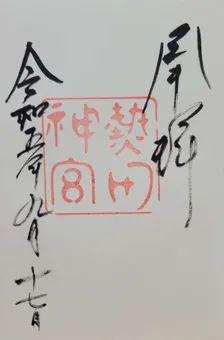 奉拝
熱田
神宮
令和五年九月十七日